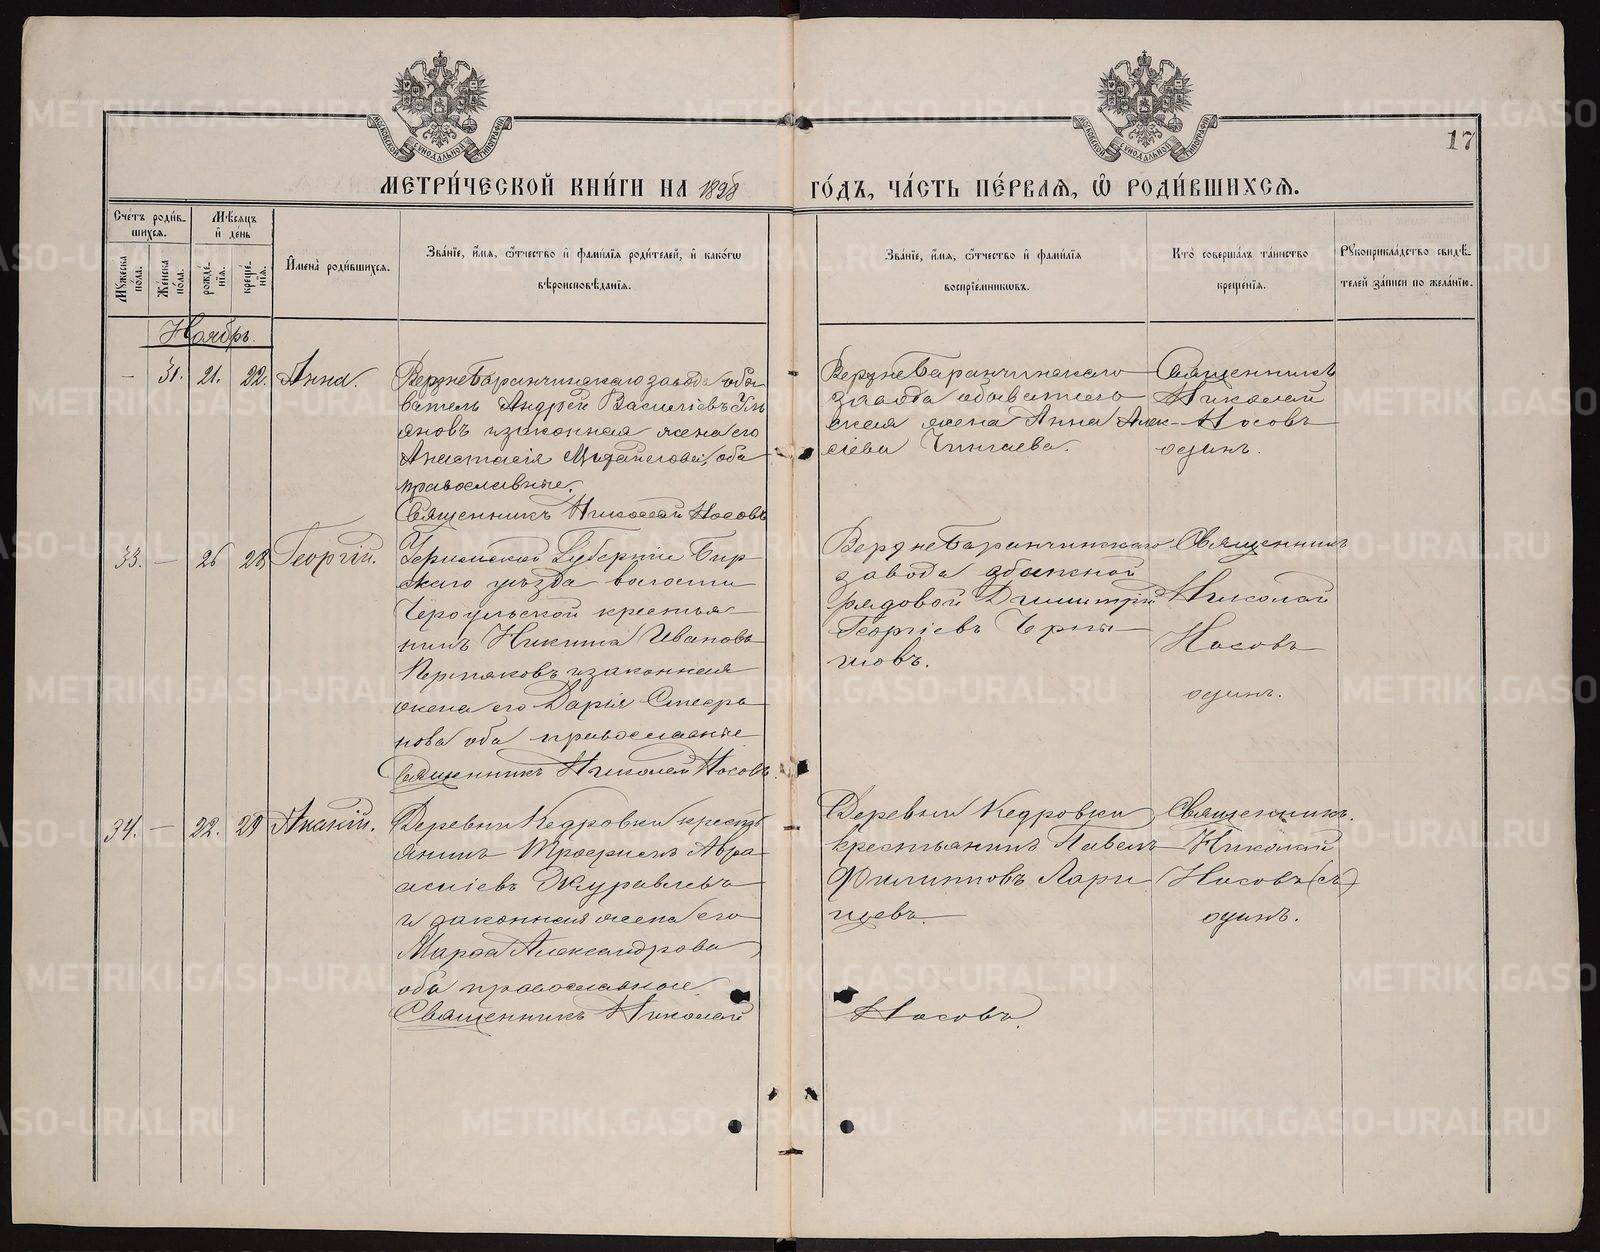 МОСКОВСКОЙ СѴНОДАЛЬНОЙ ТИПОГРАФІИ
МОСКОВСКОЙ СѴНОДАЛЬНОЙ ТИПОГРАФІИ
17
МЕТРИ́ЧЕСКОЙ КНИ́ГИ НА 1898 ГО́ДЪ, ЧА́СТЬ ПЕ́РВАѦ, Ѡ҆ РОДИ́ВШИХСѦ.
Сче́тъ роди́в-
шихсѧ.
Мѣ́сѧцъ
и҆ де́нь
Мꙋ́жеска
по́ла.
Же́нска
по́ла.
рожде́-
нїѧ.
креще́-
нїѧ.
И҆мена̀ роди́вшихсѧ.
Зва́нїе, и҆́мѧ, ѻ҆́тчество и҆ фами́лїѧ роди́телей, и҆ како́гѡ
вѣроисповѣ́данїѧ.
Зва́нїе, и҆́мѧ, ѻ҆́тчество и҆ фами́лїѧ
воспрїе́мникѡвъ.
Кто̀ соверша́лъ та́инство
креще́нїѧ.
Рꙋкоприкла́дство свидѣ́-
телей за́писи по жела́нїю.
Ноябрь.
— 31. 21. 22. Анна.
ВерхнеБаранчинскаго завода обы-
ватель Андрей Васильевъ
и законная жена его
Анастасія оба
православные.
Священникъ Николай Носовъ
ВерхнеБаранчинскаго
завода обыватель
ская жена Анна Алек-
сіева
Священникъ
Николай
Носовъ
одинъ.
33. — 26 28 Георгій.
Губерніи Бир-
скаго уѣзда волости
крестья-
нинъ Никита Ивановъ
Пермяковъ и законная
жена его Дарія
нова оба православные
Священникъ Николай Носовъ.
ВерхнеБаранчинскаго
завода запасной
рядовой Димитрій
Георгіевъ Черны-
шовъ.
Священникъ
Николай
Носовъ
одинъ.
34. — 22. 29 Акакій.
Деревни Кедровки кресть-
янинъ Афа-
насіевъ Журавлевъ
и законная жена его
Марфа Александрова
оба православные.
Священникъ Николай
Деревни Кедровки
крестьянинъ Павелъ
Филипповъ Лари-
цевъ.
Священникъ.
Николай
Носовъ (съ)
одинъ.
Носовъ.
METRIKI.GASO-URAL.RU